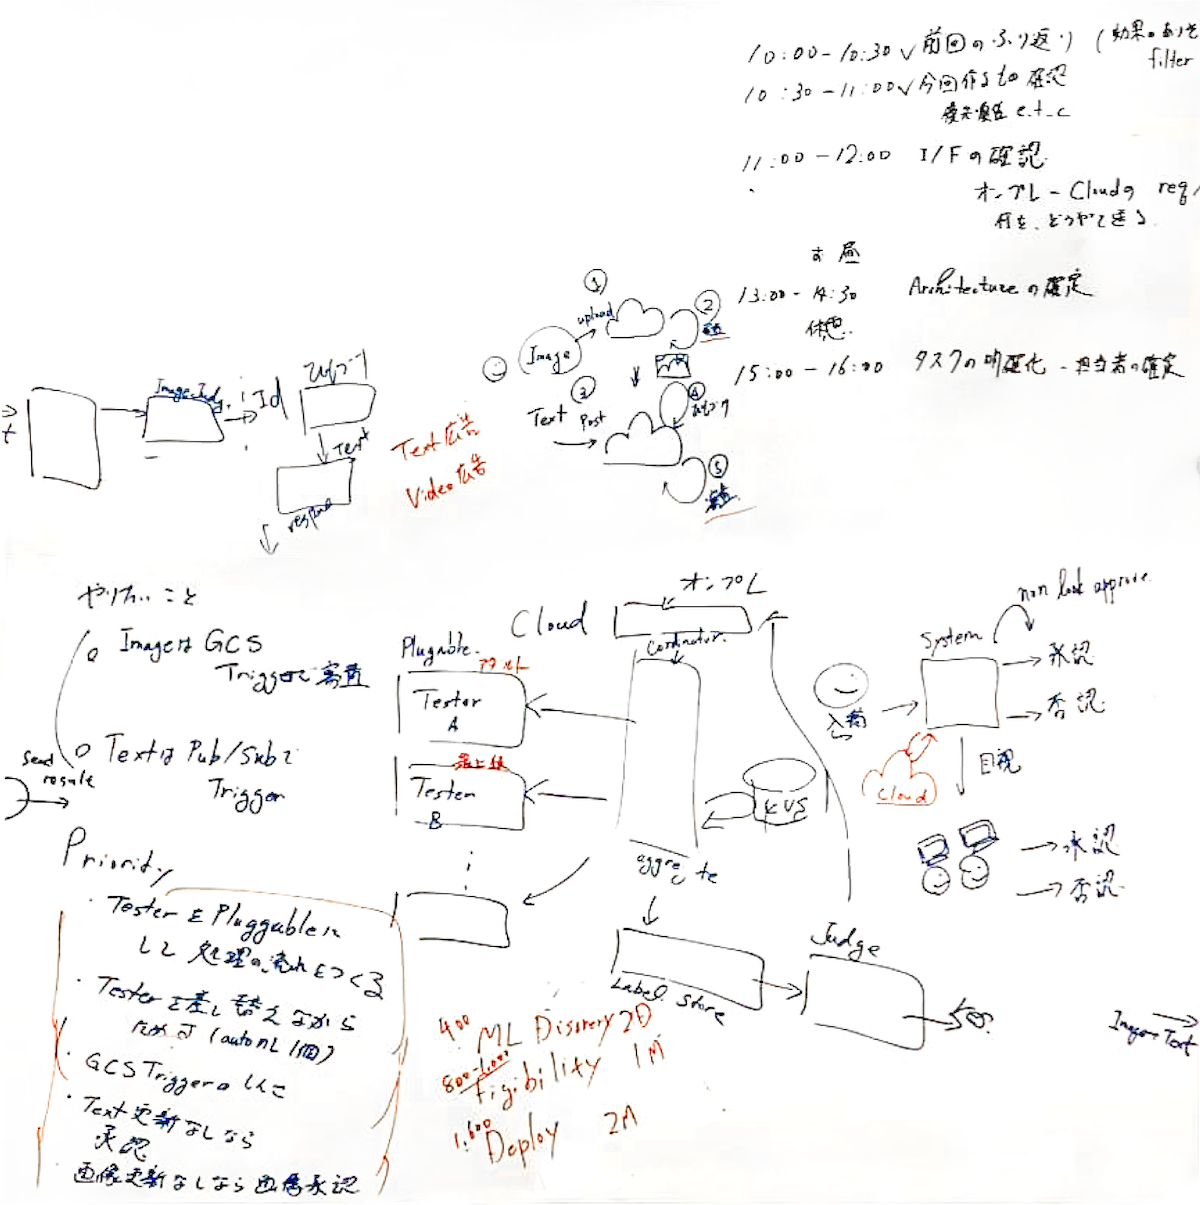 10:00-10:30 ✓ 前回のふり返り (効果のあり
filter
10:30-11:00 ✓ 今回作るもの確認
優先順位 e.t.c
11:00-12:00 I/Fの確認
オンプレ-Cloudの req/
何を、どうやって送る
お昼
13:00-14:30 Architectureの確定
休憩
15:00-16:00 タスクの明確化-担当者の確定
t
Image Judge
Id
ひもづけ
Text
response
Text広告
Video広告
① upload
Image
②
審査
③
Text Post
④
ひもづけ
⑤
審査
やりたいこと
ImageはGCS
Triggerで審査
TextはPub/Subで
Trigger
send
result
Priority
・TesterをPluggableに
して処理の流れをつくる
・Testerを差し替えながら
ためす(autoML 1個)
・GCS Triggerの
・Text更新なしなら
承認
画像更新なしなら画像承認
オンプレ
Cloud
Cordinator
Plugable
Tester
A
Tester
B
KVS
aggregate
Label Store
Judge
non look approve
System
承認
否認
入稿
Cloud
目視
承認
否認
400 ML Disovery 2D
800-1,000 Figibility 1M
1,600 Deploy 2M
Image Text